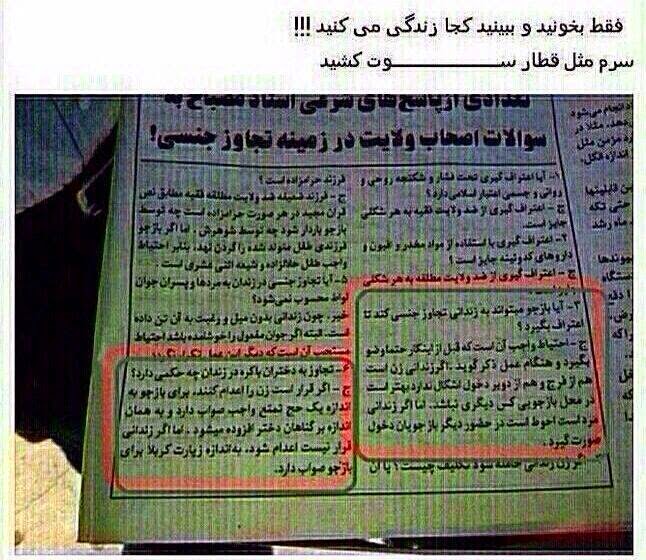 فقط بخونید و ببینید کجا زندگی می کنید !!!
سرم مثل قطار ســـــــــــوت کشید
تعدادی از پاسخ های شرعی استاد مصباح به
سوالات اصحاب ولایت در زمینه تجاوز جنسی!
۱- آیا اعتراف گیری تحت فشار و شکنجه روحی و
روانی و جنسی اعتبار اسلامی دارد؟
ج - اعتراف گیری از ضد ولایت فقیه به هر شکلی
جایز است.
۲- اعتراف گیری با استفاده از مواد مخدر و افیون و
داروهای کدوئینه جایز است؟
ج - اعتراف گیری از ضد ولایت مطلقه به هر شکلی
۳- آیا بازجو میتواند به زندانی تجاوز جنسی کند تا
اعتراف بگیرد؟
ج - احتیاط واجب آن است که قبل از اینکار حتما وضو
بگیرد و هنگام عمل ذکر گوید. اگر زندانی زن است
هم از فرج و هم از دوبر دخول اشکال ندارد بهتر است
در محل بازجویی کس دیگری نباشد. اما اگر زندانی
مرد است احوط است در حضور دیگر بازجویان دخول
صورت گیرد.
زن زندانی حامله شود تکلیف چیست؟ آیا آن
فرزند حرامزاده است؟
ج - فرزند ضعیفه ضد ولایت مطلقه فقیه مطابق نص
قران مجید در هر صورت حرامزاده است چه توسط
بازجو باردار شود چه توسط شوهرش. اما اگر بازجو
فرزندی طفل متولد شده را گردن نهد، بنابر احتیاط
واجب طفل حلالزاده و شیعه اثنی عشری است.
۵- آیا تجاوز جنسی در زندان به مردها و پسران جوان
لواط محسوب نمی‌شود؟
خیر. چون زندانی بدون میل و رغبت به آن تن داده
است. البته اگر چون مفعول را خوشنود باشد احتیاط
مستحب آن است که دیگر
تجاوز به دختران باکره در زندان چه حکمی دارد؟
ج - اگر قرار است زن را اعدام کنند، برای بازجو به
اندازه یک حج تمتع واجب صواب دارد و به همان
اندازه بر گناهان دختر افزوده میشود. اما اگر زندانی
قرار نیست اعدام شود، به‌اندازه زیارت کربلا برای
بازجو صواب دارد.